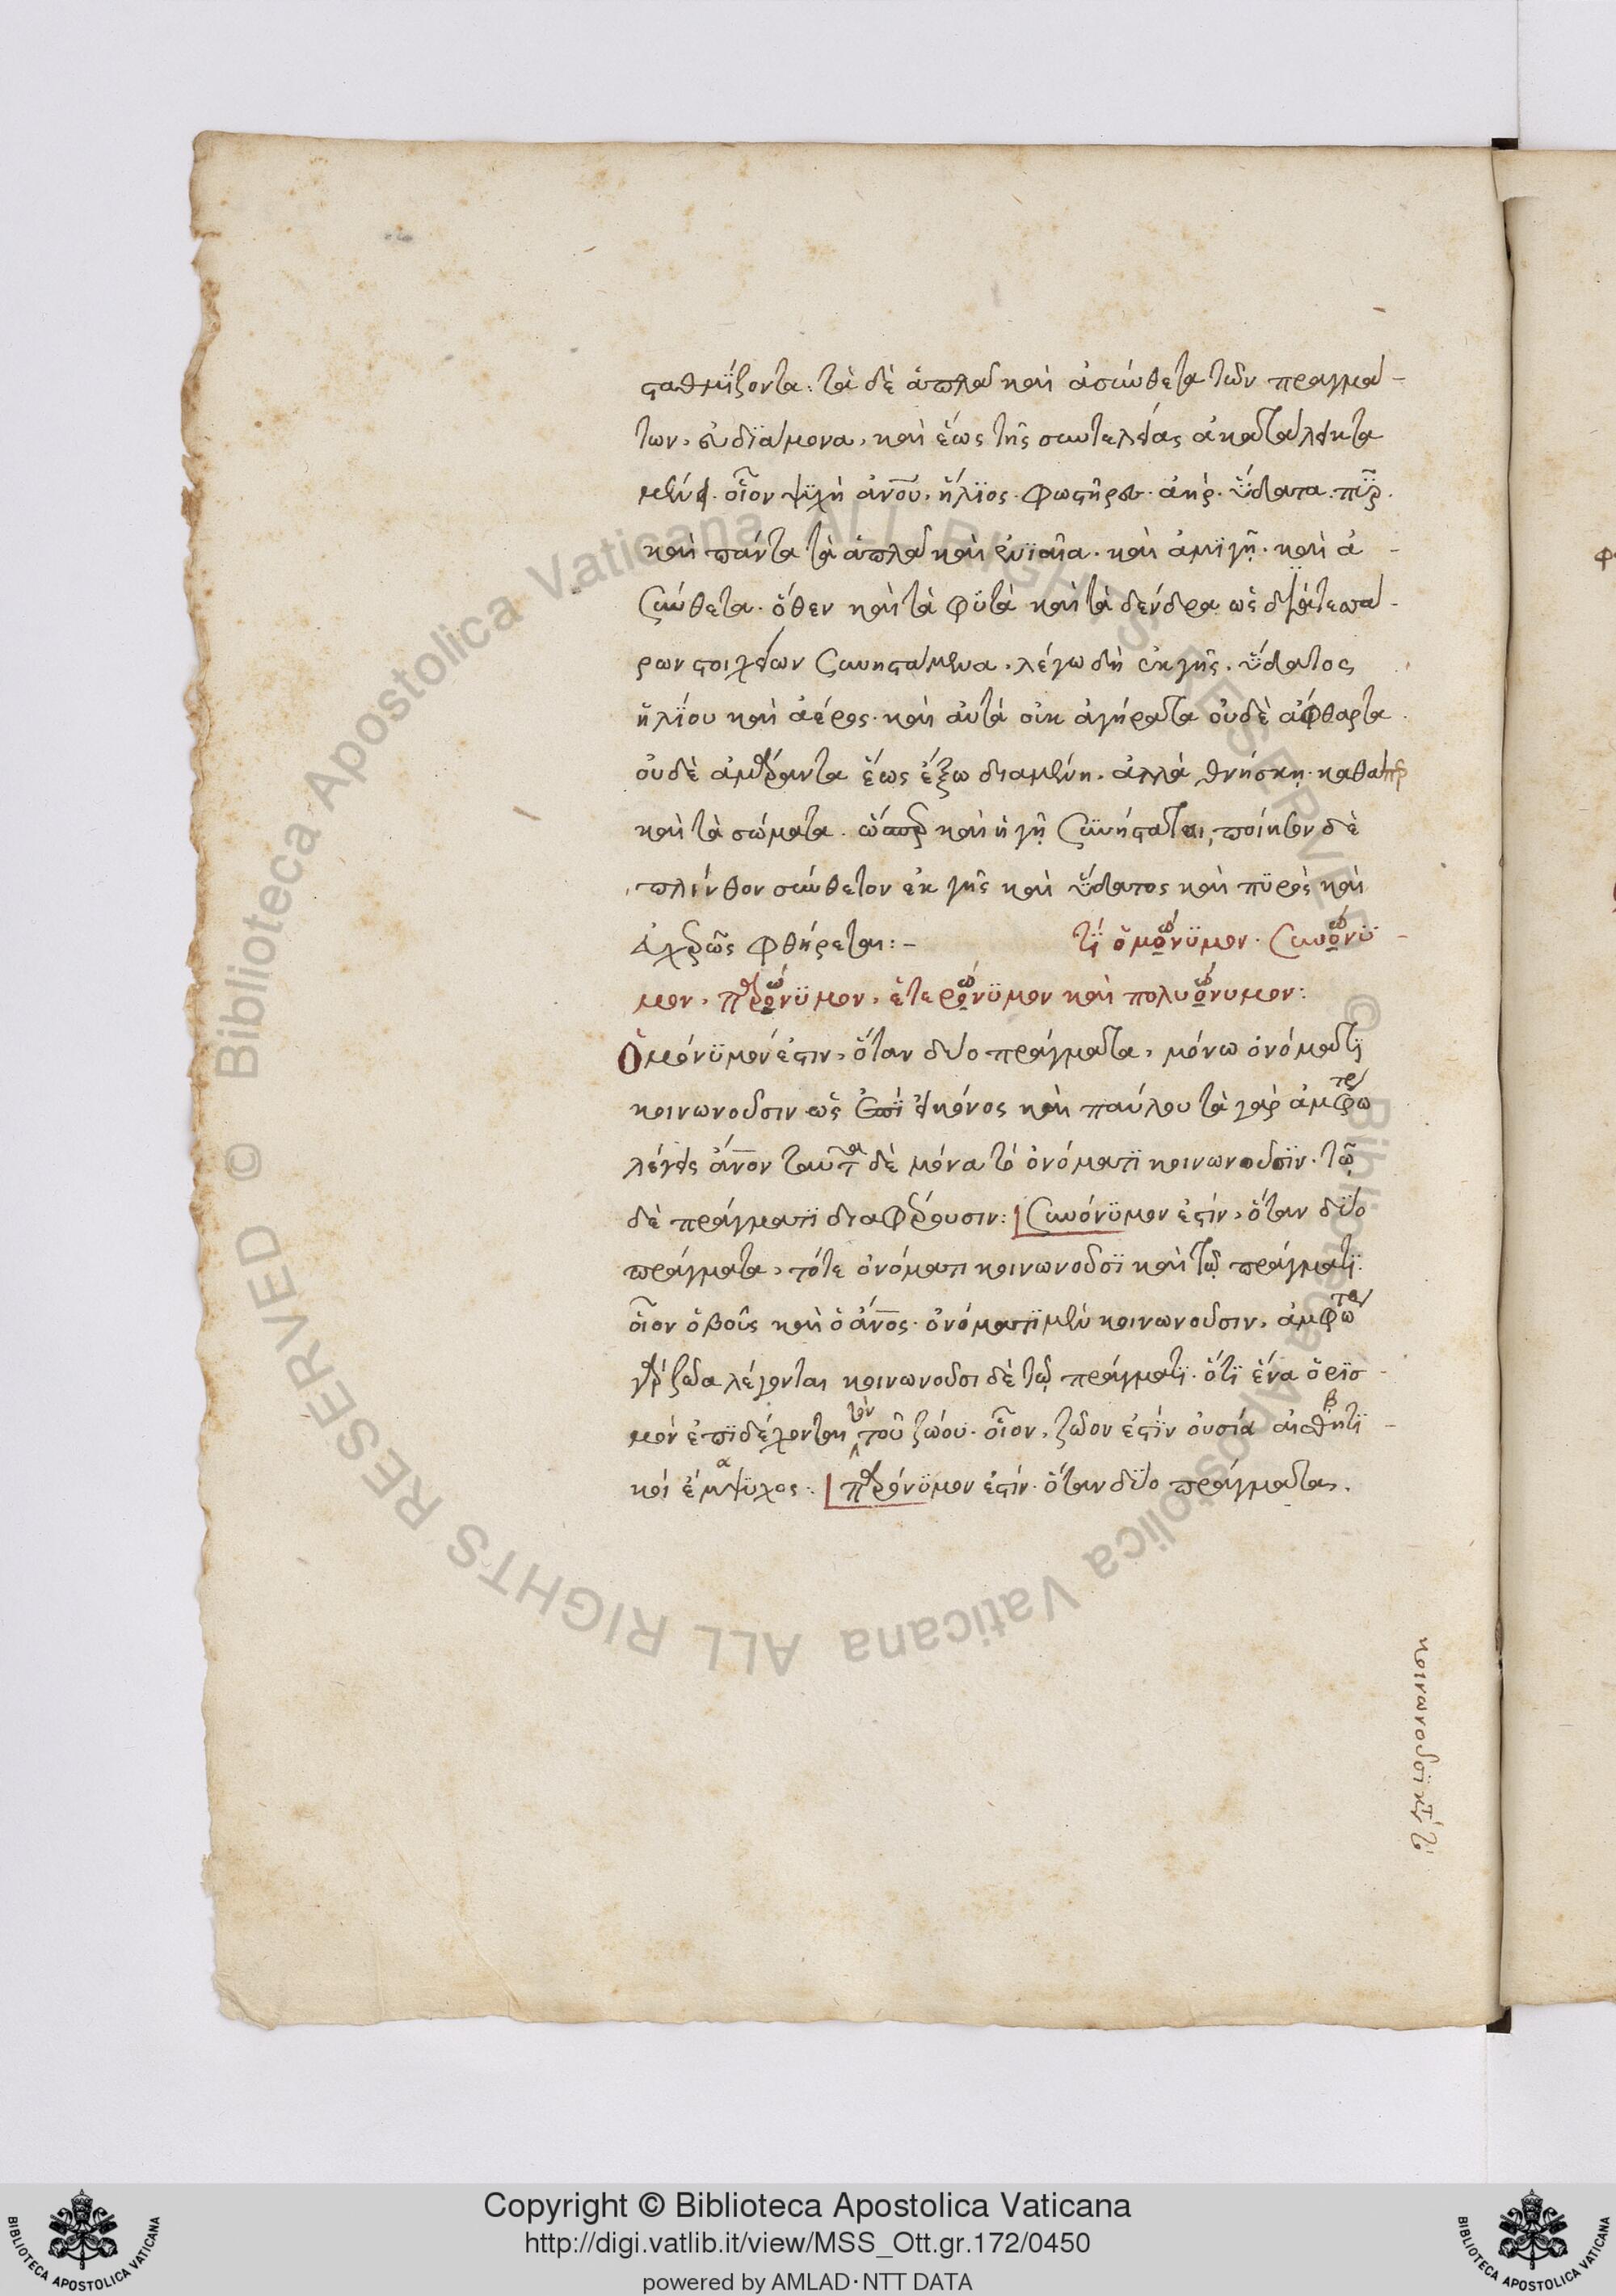 σταθμίζοντα· τὰ δὲ ἁπλᾶ καὶ ἀσύνθετα τῶν πραγμά-
των, καὶ ἕως τῆς συντελείας ἀκατάληκτα
οἷον ψυχὴ ἀνοῦ, ἥλϊος. φωστῆρες. ἀήρ. ὕδατα. πῦρ.
καὶ πάντα τὰ ἁπλᾶ καὶ καὶ ἀμϊγῆ. καὶ ἀ-
σύνθετα. ὅθεν καὶ τὰ φϋτὰ καὶ τὰ δένδρα ὡς
ρων στοιχείων συνηστάμενα, λέγω δὴ ἐκ γῆς. ὕδατος
ἡλΐου καὶ ἀέρος. καὶ αὐτὰ οὐκ ἀγήρατα οὐδὲ ἄφθαρτα
οὐδὲ ἀμάραντα ἕως ἔξω διαμένη. ἀλλὰ θνήσκη. καθάπερ
καὶ τὰ σώματα. ὥσπερ καὶ ἡ γῆ συνήσταται, ποίησον δὲ
πλίνθον σύνθετον ἐκ γῆς καὶ ὕδατος καὶ πϋρὸς καὶ
φθήρεται:- τΐ ὁμώνϋμον. συνώνϋ-
μον, παρώνϋμον, ἑτερώνϋμον καὶ πολυώνυμον:
Ὁμόνϋμόν ἐστιν, ὅταν δύο πράγματα, μόνω ὀνόματϊ
κοινωνοῦσιν ὡς ἐπῒ εἰκόνος καὶ παύλου τὰ γὰρ ἀμφότερα
λέγεις ἄνον ταῦτα δὲ μόνα τὸ ὀνόματϊ κοινωνοῦσϊν. τῶ
δὲ πράγματϊ διαφέρουσιν: συνόνϋμον ἐστίν, ὅταν δύο
πράγματα, τότε ὀνόματι κοινωνοῦσϊ καὶ τῶ πράγματϊ.
οἷον ὁ βοῦς καὶ ὁ ἄνος. ὀνόματϊ μὲν κοινωνοῦσιν, ἀμφώτερα
γὰρ ζῶα λέγονται κοινωνοῦσι δὲ τῶ πράγματϊ. ὅτϊ ἕνα ὁρϊσ-
μόν ἐπϊδέχονται τὸν τοῦ ζώου. οἷον, ζῶον ἐστὶν οὐσία αἰσθητϊ-
κοί ἔμψϋχος: παρόνϋμον ἐστίν. ὅταν δύο πράγματα.
κοινωνοῦσϊ κατὰ τὸ